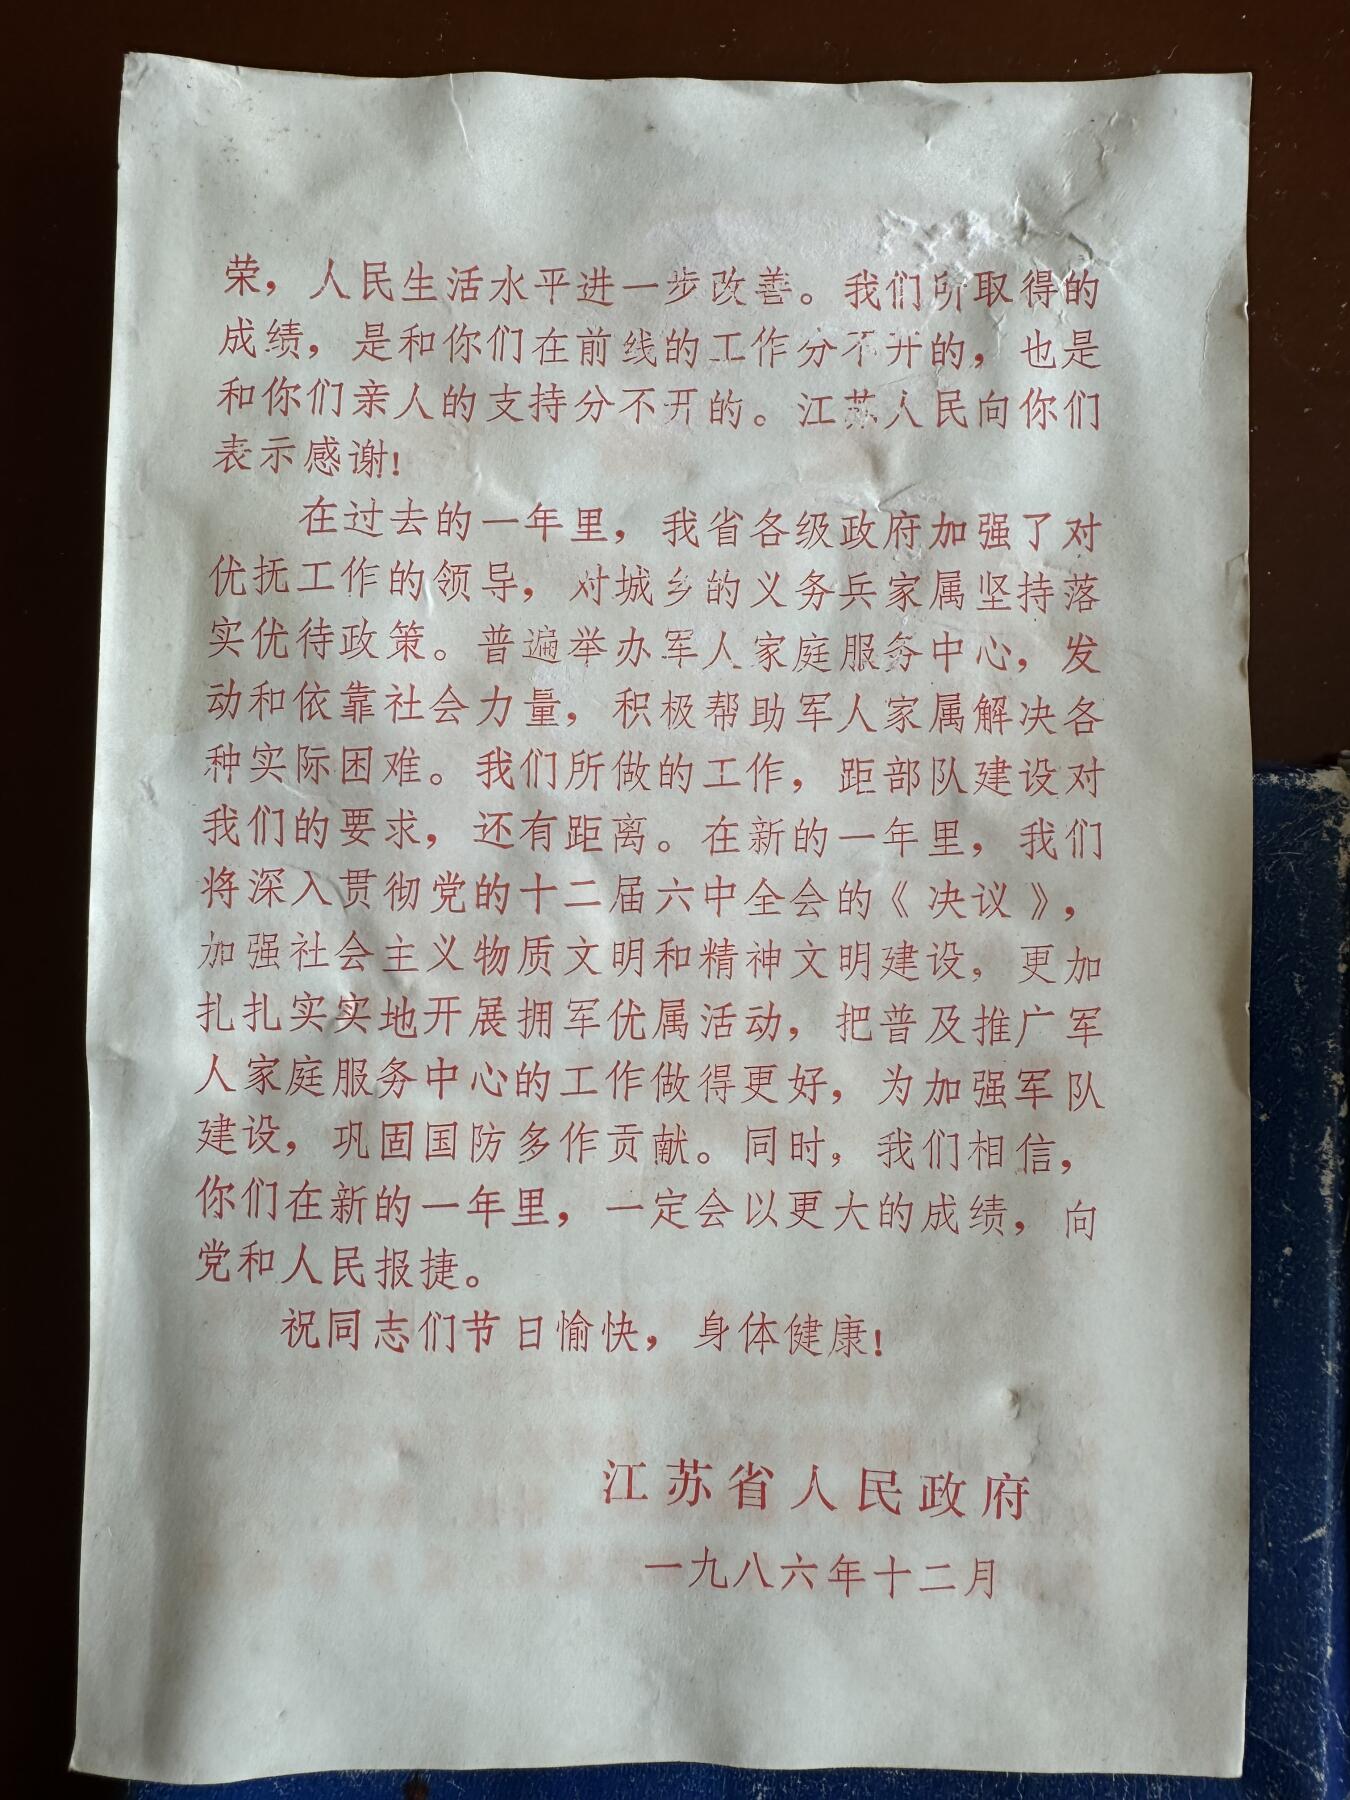 荣，人民生活水平进一步改善。我们所取得的
成绩，是和你们在前线的工作分不开的，也是
和你们亲人的支持分不开的。江苏人民向你们
表示感谢！
在过去的一年里，我省各级政府加强了对
优抚工作的领导，对城乡的义务兵家属坚持落
实优待政策。普遍举办军人家庭服务中心，发
动和依靠社会力量，积极帮助军人家属解决各
种实际困难。我们所做的工作，距部队建设对
我们的要求，还有距离。在新的一年里，我们
将深入贯彻党的十二届六中全会的《决议》，
加强社会主义物质文明和精神文明建设，更加
扎扎实实地开展拥军优属活动，把普及推广军
人家庭服务中心的工作做得更好，为加强军队
建设，巩固国防多作贡献。同时，我们相信，
你们在新的一年里，一定会以更大的成绩，向
党和人民报捷。
祝同志们节日愉快，身体健康！
江苏省人民政府
一九八六年十二月